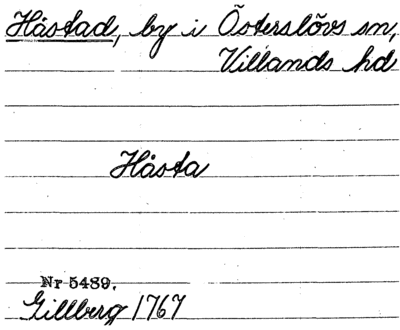 Håstad, by i Österslövs sn,
Villands hd
Håsta
Nr 5489.
Gillberg 1767